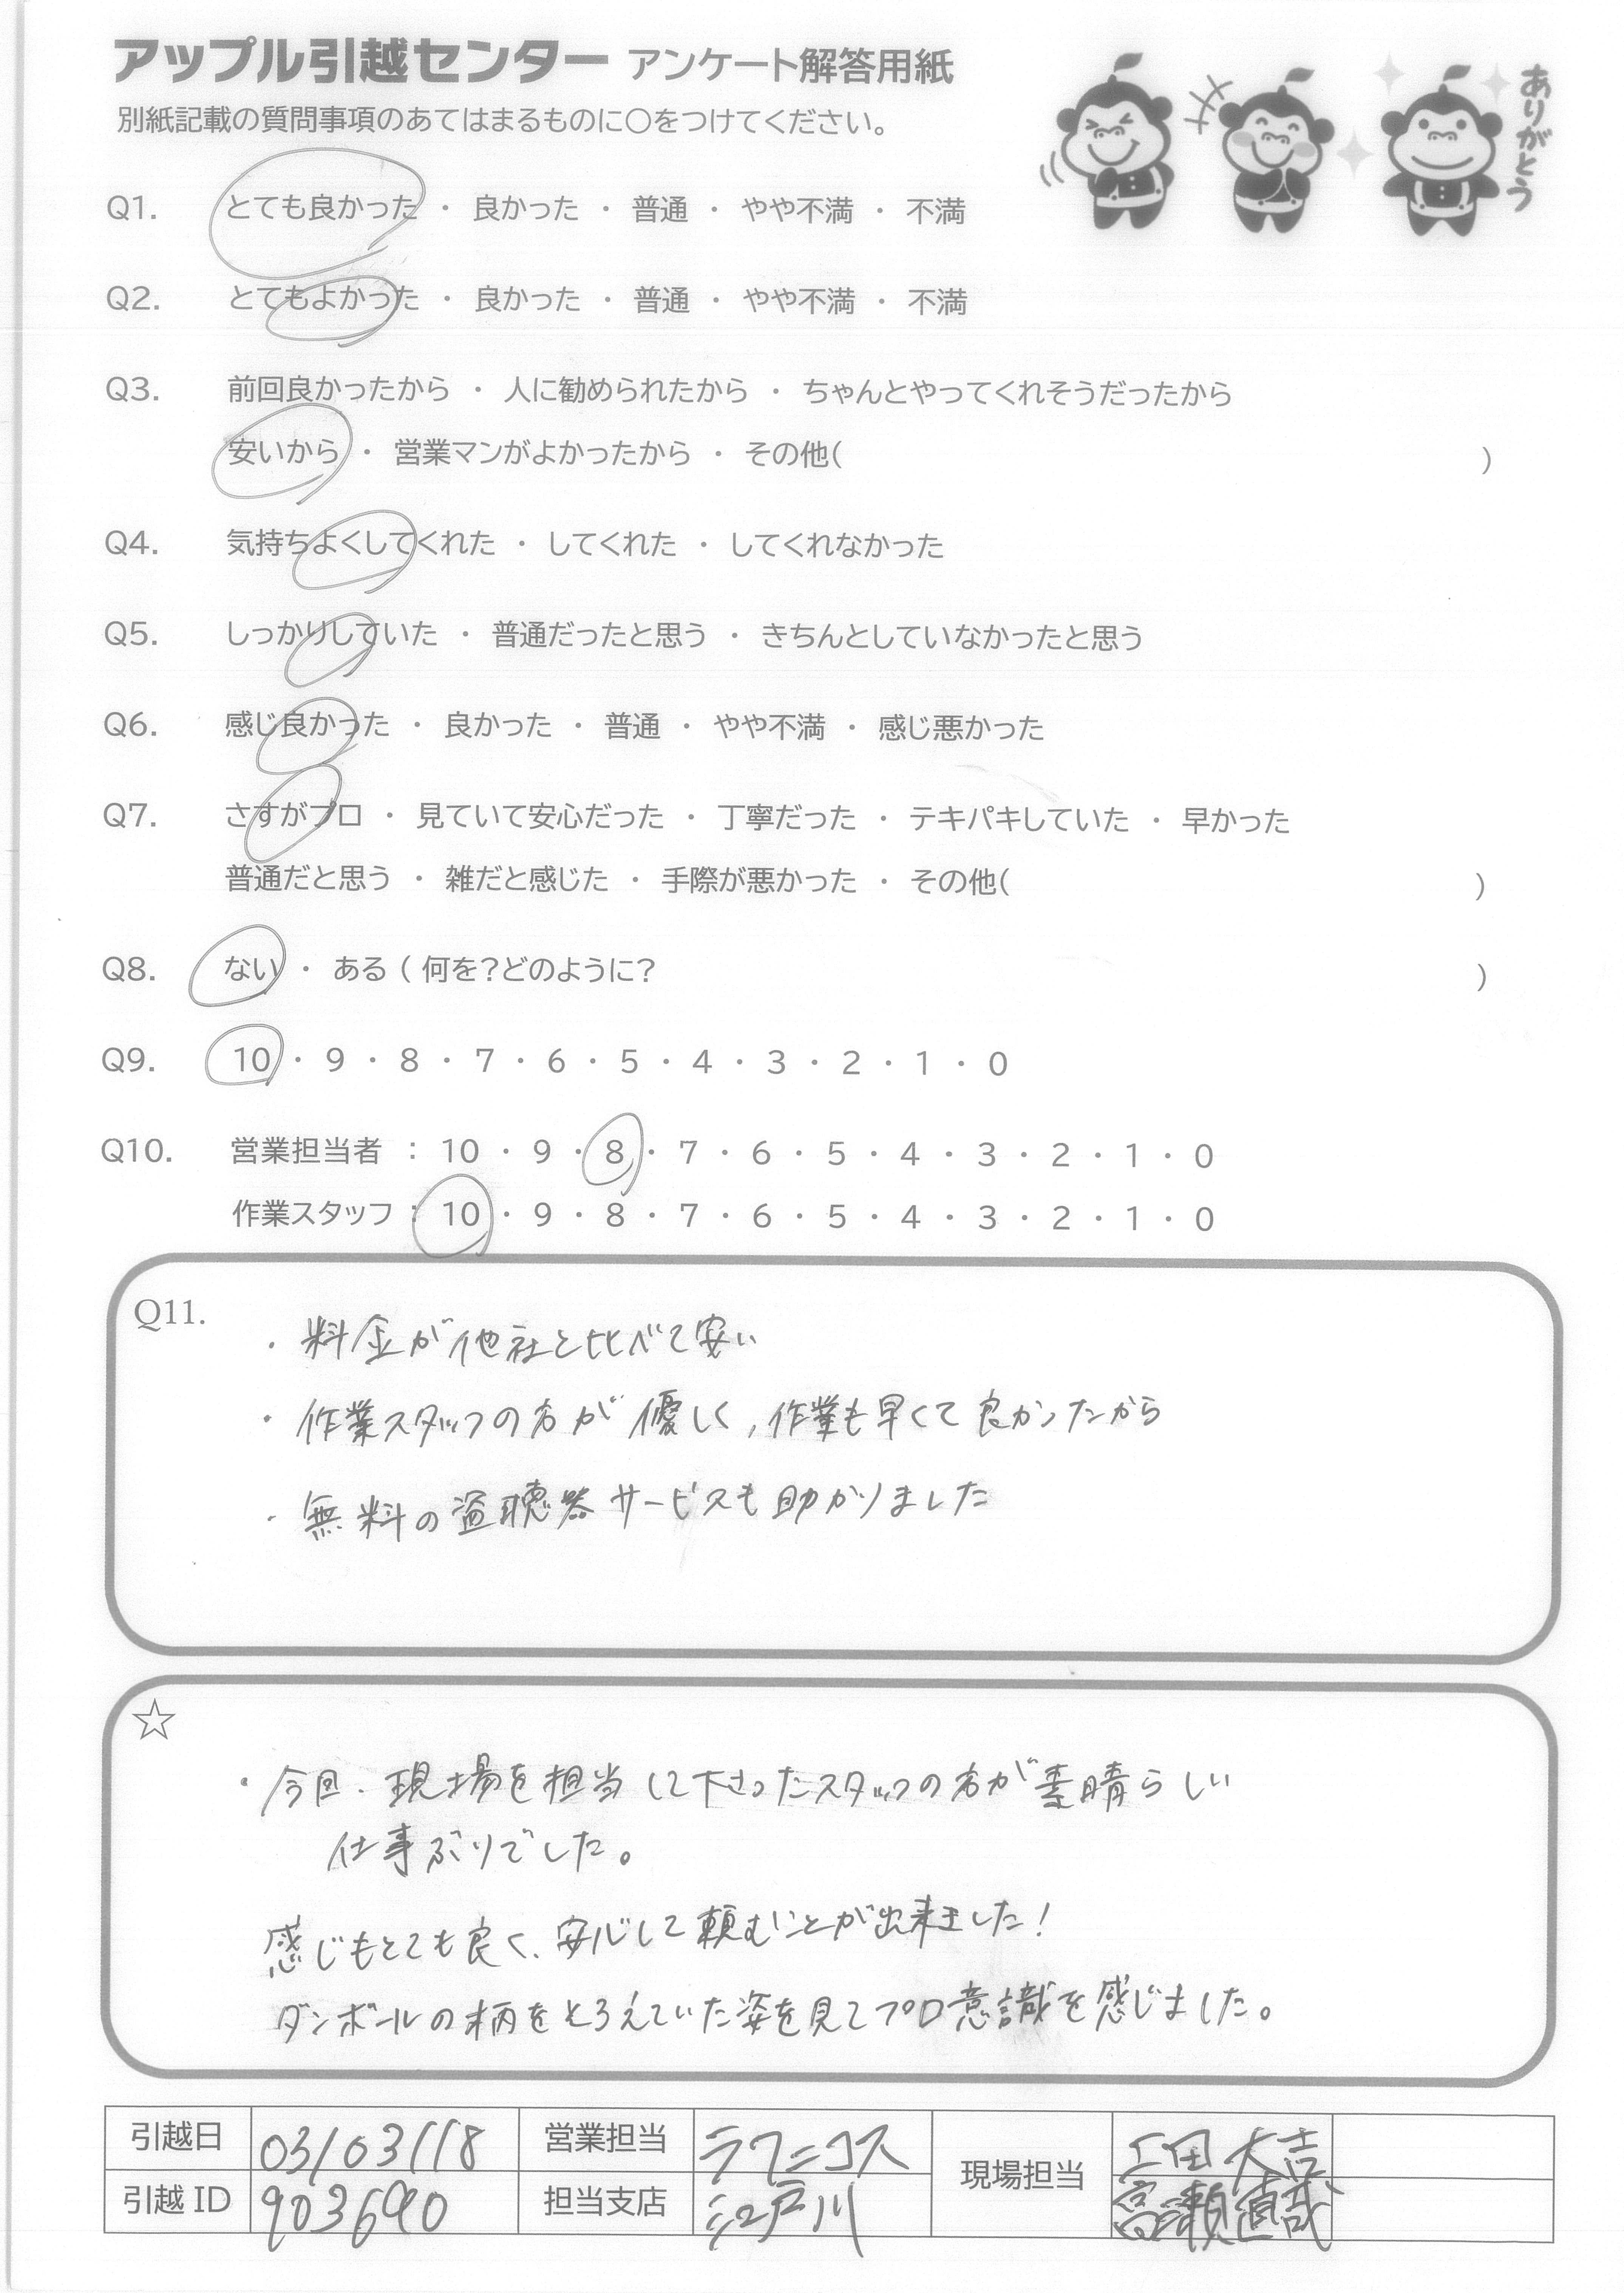 アップル引越センター アンケート解答用紙
別紙記載の質問事項のあてはまるものに〇をつけてください。
ありがとう
Q1. とても良かった ・ 良かった ・ 普通 ・ やや不満 ・ 不満
Q2. とてもよかった ・ 良かった ・ 普通 ・ やや不満 ・ 不満
Q3. 前回良かったから ・ 人に勧められたから ・ ちゃんとやってくれそうだったから
安いから ・ 営業マンがよかったから ・ その他( )
Q4. 気持ちよくしてくれた ・ してくれた ・ してくれなかった
Q5. しっかりしていた ・ 普通だったと思う ・ きちんとしていなかったと思う
Q6. 感じ良かった ・ 良かった ・ 普通 ・ やや不満 ・ 感じ悪かった
Q7. さすがプロ ・ 見ていて安心だった ・ 丁寧だった ・ テキパキしていた ・ 早かった
普通だと思う ・ 雑だと感じた ・ 手際が悪かった ・ その他( )
Q8. ない ・ ある ( 何を?どのように? )
Q9. 10 ・ 9 ・ 8 ・ 7 ・ 6 ・ 5 ・ 4 ・ 3 ・ 2 ・ 1 ・ 0
Q10. 営業担当者 : 10 ・ 9 ・ 8 ・ 7 ・ 6 ・ 5 ・ 4 ・ 3 ・ 2 ・ 1 ・ 0
作業スタッフ : 10 ・ 9 ・ 8 ・ 7 ・ 6 ・ 5 ・ 4 ・ 3 ・ 2 ・ 1 ・ 0
Q11.
・料金が他社と比べて安い
・作業スタッフの方が優しく、作業も早くて良かったから
・無料の盗聴器サービスも助かりました
☆
・今回、現場を担当して下さったスタッフの方が素晴らしい
仕事ぶりでした。
感じもとても良く、安心して頼むことが出来ました!
ダンボールの柄をそろえていた姿を見てプロ意識を感じました。
引越日 03/03/18 営業担当 ラフニコス 現場担当 上田 大吉
引越ID 903690 担当支店 江戸川 高瀬直哉